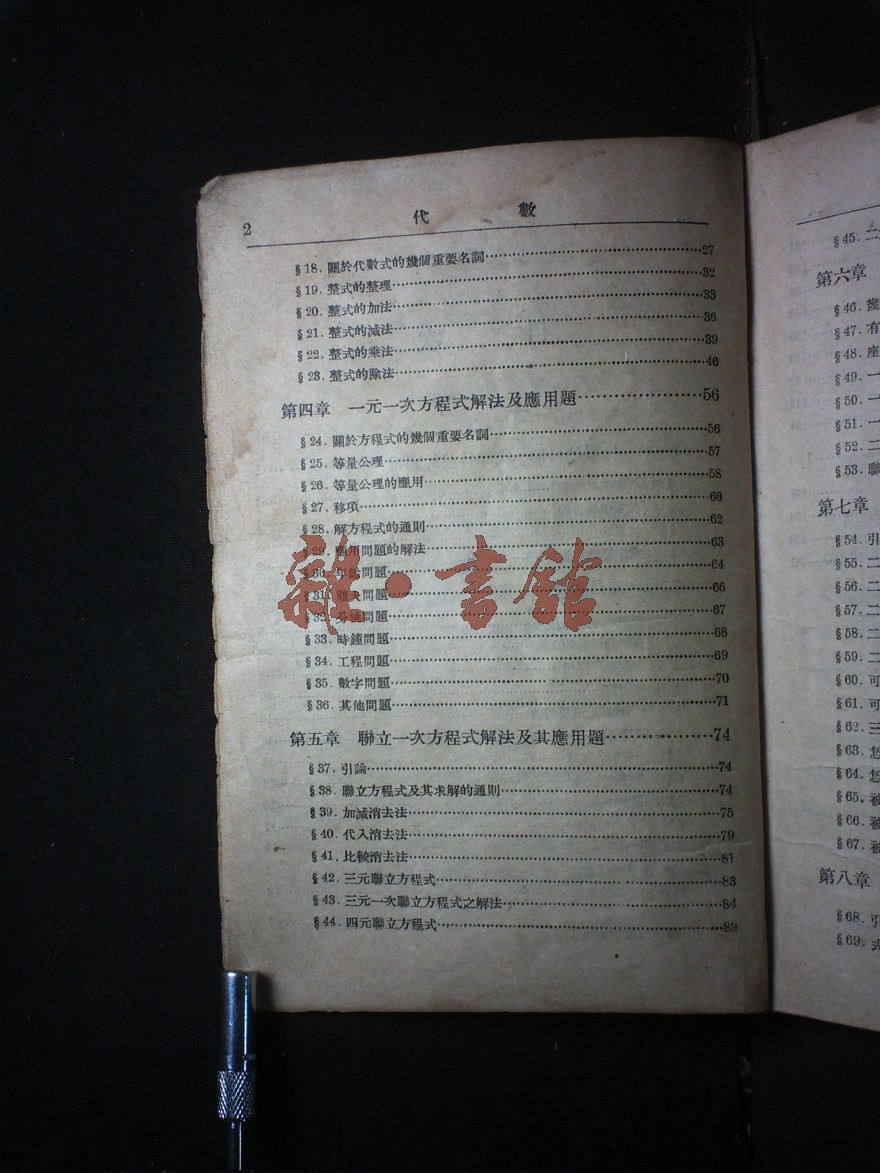 2
代 數
§18. 關於代數式的幾個重要名詞 27
§19. 整式的整理 32
§20. 整式的加法 33
§21. 整式的減法 36
§22. 整式的乘法 39
§23. 整式的除法 46
第四章 一元一次方程式解法及應用題 56
§24. 關於方程式的幾個重要名詞 56
§25. 等量公理 57
§26. 等量公理的應用 58
§27. 移項 60
§28. 解方程式的通則 62
§29. 應用問題的解法 63
§30. 年齡問題 64
§31. 問題 66
§32. 問題 67
§33. 時鐘問題 68
§34. 工程問題 69
§35. 數字問題 70
§36. 其他問題 71
第五章 聯立一次方程式解法及其應用題 74
§37. 引論 74
§38. 聯立方程式及其求解的通則 74
§39. 加減消去法 75
§40. 代入消去法 79
§41. 比較消去法 81
§42. 三元聯立方程式 83
§43. 三元一次聯立方程式之解法 84
§44. 四元聯立方程式 89
雜·書館
§45. 二
第六章
§46. 幾
§47. 有
§48. 座
§49. 一
§50. 一
§51. 一
§52. 二
§53. 聯
第七章
§54. 引
§55. 二
§56. 二
§57. 二
§58. 二
§59. 二
§60. 可
§61. 可
§62. 三
§63. 怎
§64. 怎
§65. 被
§66. 被
§67. 被
第八章
§68. 引
§69. 式